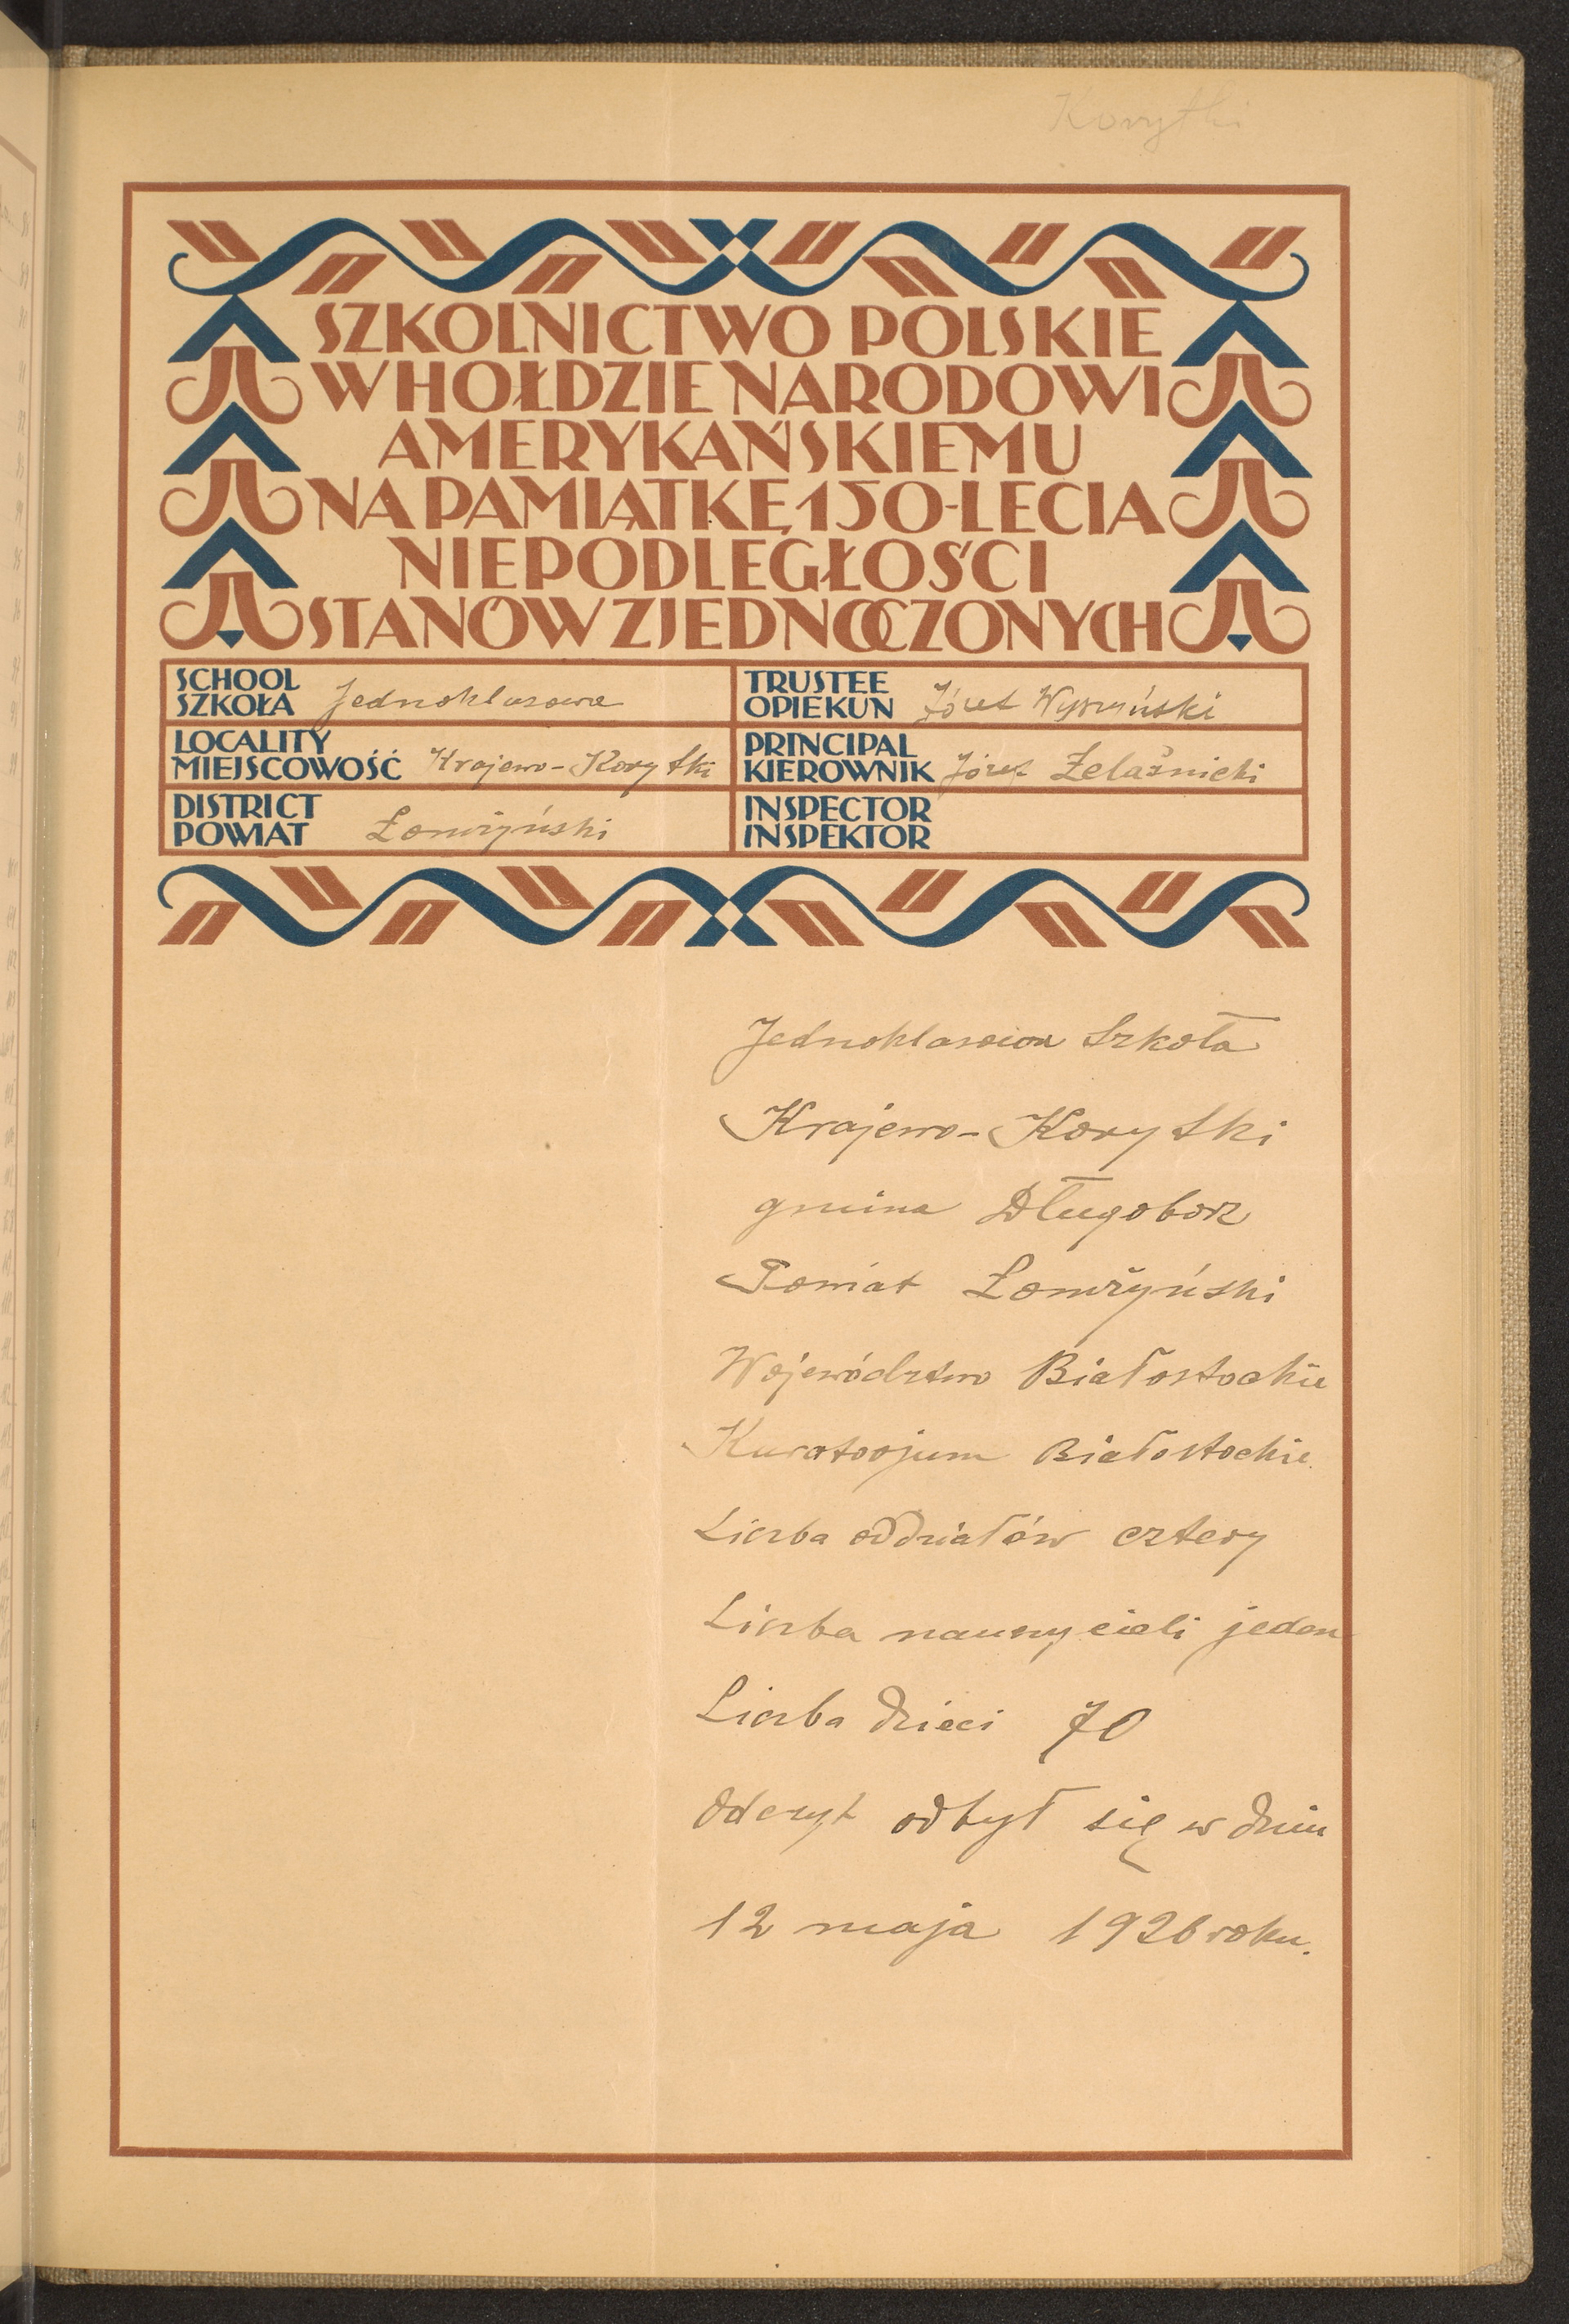 Korytki
SZKOLNICTWO POLSKIE
W HOŁDZIE NARODOWI
AMERYKAŃSKIEMU
NA PAMIĄTKĘ 150-LECIA
NIEPODLEGŁOŚCI
STANÓW ZJEDNOCZONYCH
SCHOOL
SZKOŁA Jednoklasowa
TRUSTEE
OPIEKUN Józef
LOCALITY
MIEJSCOWOŚĆ Krajewo-Korytki
PRINCIPAL
KIEROWNIK Józef Żelaźnicki
DISTRICT
POWIAT Łomżyński
INSPECTOR
INSPEKTOR
Jednoklasowa Szkoła
Krajewo-Korytki
gmina Długobórz
Powiat Łomżyński
Województwo Białostockie
Kuratorjum Białostockie.
Liczba oddziałów cztery
Liczba nauczycieli jeden
Liczba dzieci 70
Odczyt odbył się w dniu
12 maja 1926 roku.